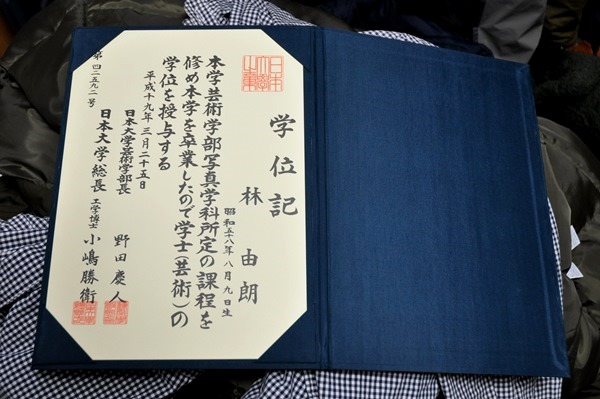 学位記
林 由朗
昭和五十八年八月九日生
本学芸術学部写真学科所定の課程を
修め本学を卒業したので学士(芸術)の
学位を授与する
平成十九年三月二十五日
日本大学芸術学部長 野田慶人
日本大学総長 工学博士 小嶋勝衛
第四二五九二号